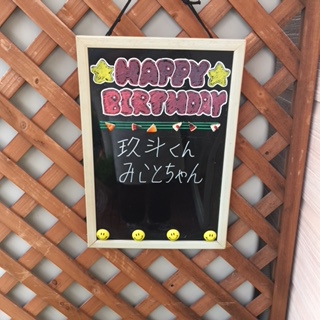 HAPPY
BIRTHDAY
玖斗くん
みことちゃん